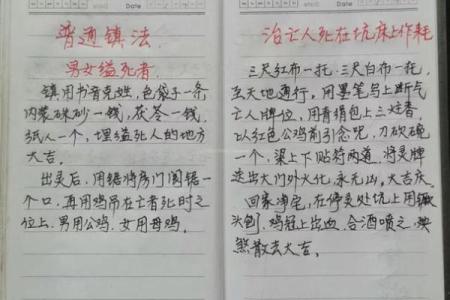 Date
普通镇法.
男女缢死者.
镇用书音克姓,色袋子一条
内装硃砂一钱,茯苓一钱.
纸人一个,埋缢死人的地方
大吉.
出灵后,用锯将房门阁锯一
个口,再用鸡吊在亡者死时之
位上.男用公鸡.女用母鸡.
Date
治亡人死在坑床上作耗
三尺红布一托.三尺白布一托.
至天地通行.用墨笔与上断气
亡人牌位,用青绢包上三炷香,
以红色公鸡前引念咒,刀砍碗
一个,梁上下贴符两道,将灵牌
送出大门外火化,永无凶.大吉庆.
回家净宅,在停灵处坑上用镢
头刨,鸡冠上出血,合酒喷之,
煞散去大吉.